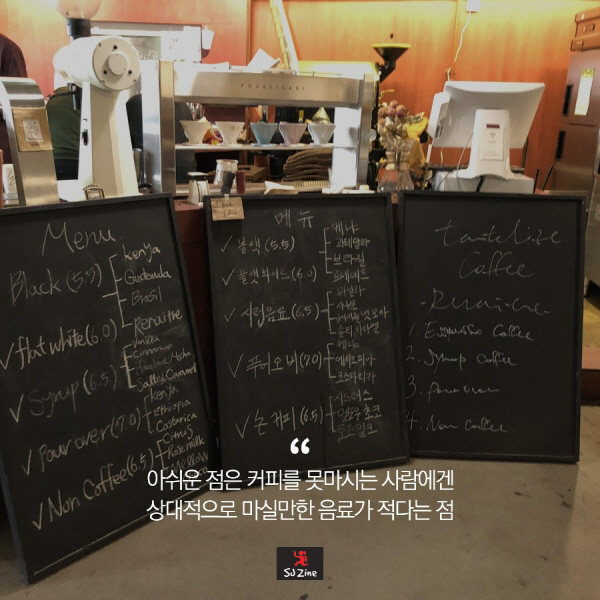 Menu
Black (5.5)
Kenya
Guatemala
Brasil
Renaithe
flat white (6.0)
Syrup (6.5)
Vanilla
Cinnamon
Mocha
Salted Caramel
Pour over (7.0)
Kenya
Ethiopia
Costarica
Non Coffee (6.5)
Citrus
Rose milk
메뉴
블랙 (5.5)
케냐
과테말라
브라질
르네이트
플랫화이트 (6.0)
시럽음료 (6.5)
바닐라
시나몬
푸어오버 (7.0)
케냐
에티오피아
코스타리카
논커피 (6.5)
시트러스
로즈밀크
tantelize
Coffee
1. Espresso Coffee
2. Syrup Coffee
3. Pour over
4. Non Coffee
“
아쉬운 점은 커피를 못마시는 사람에겐
상대적으로 마실만한 음료가 적다는 점
SJ Zine